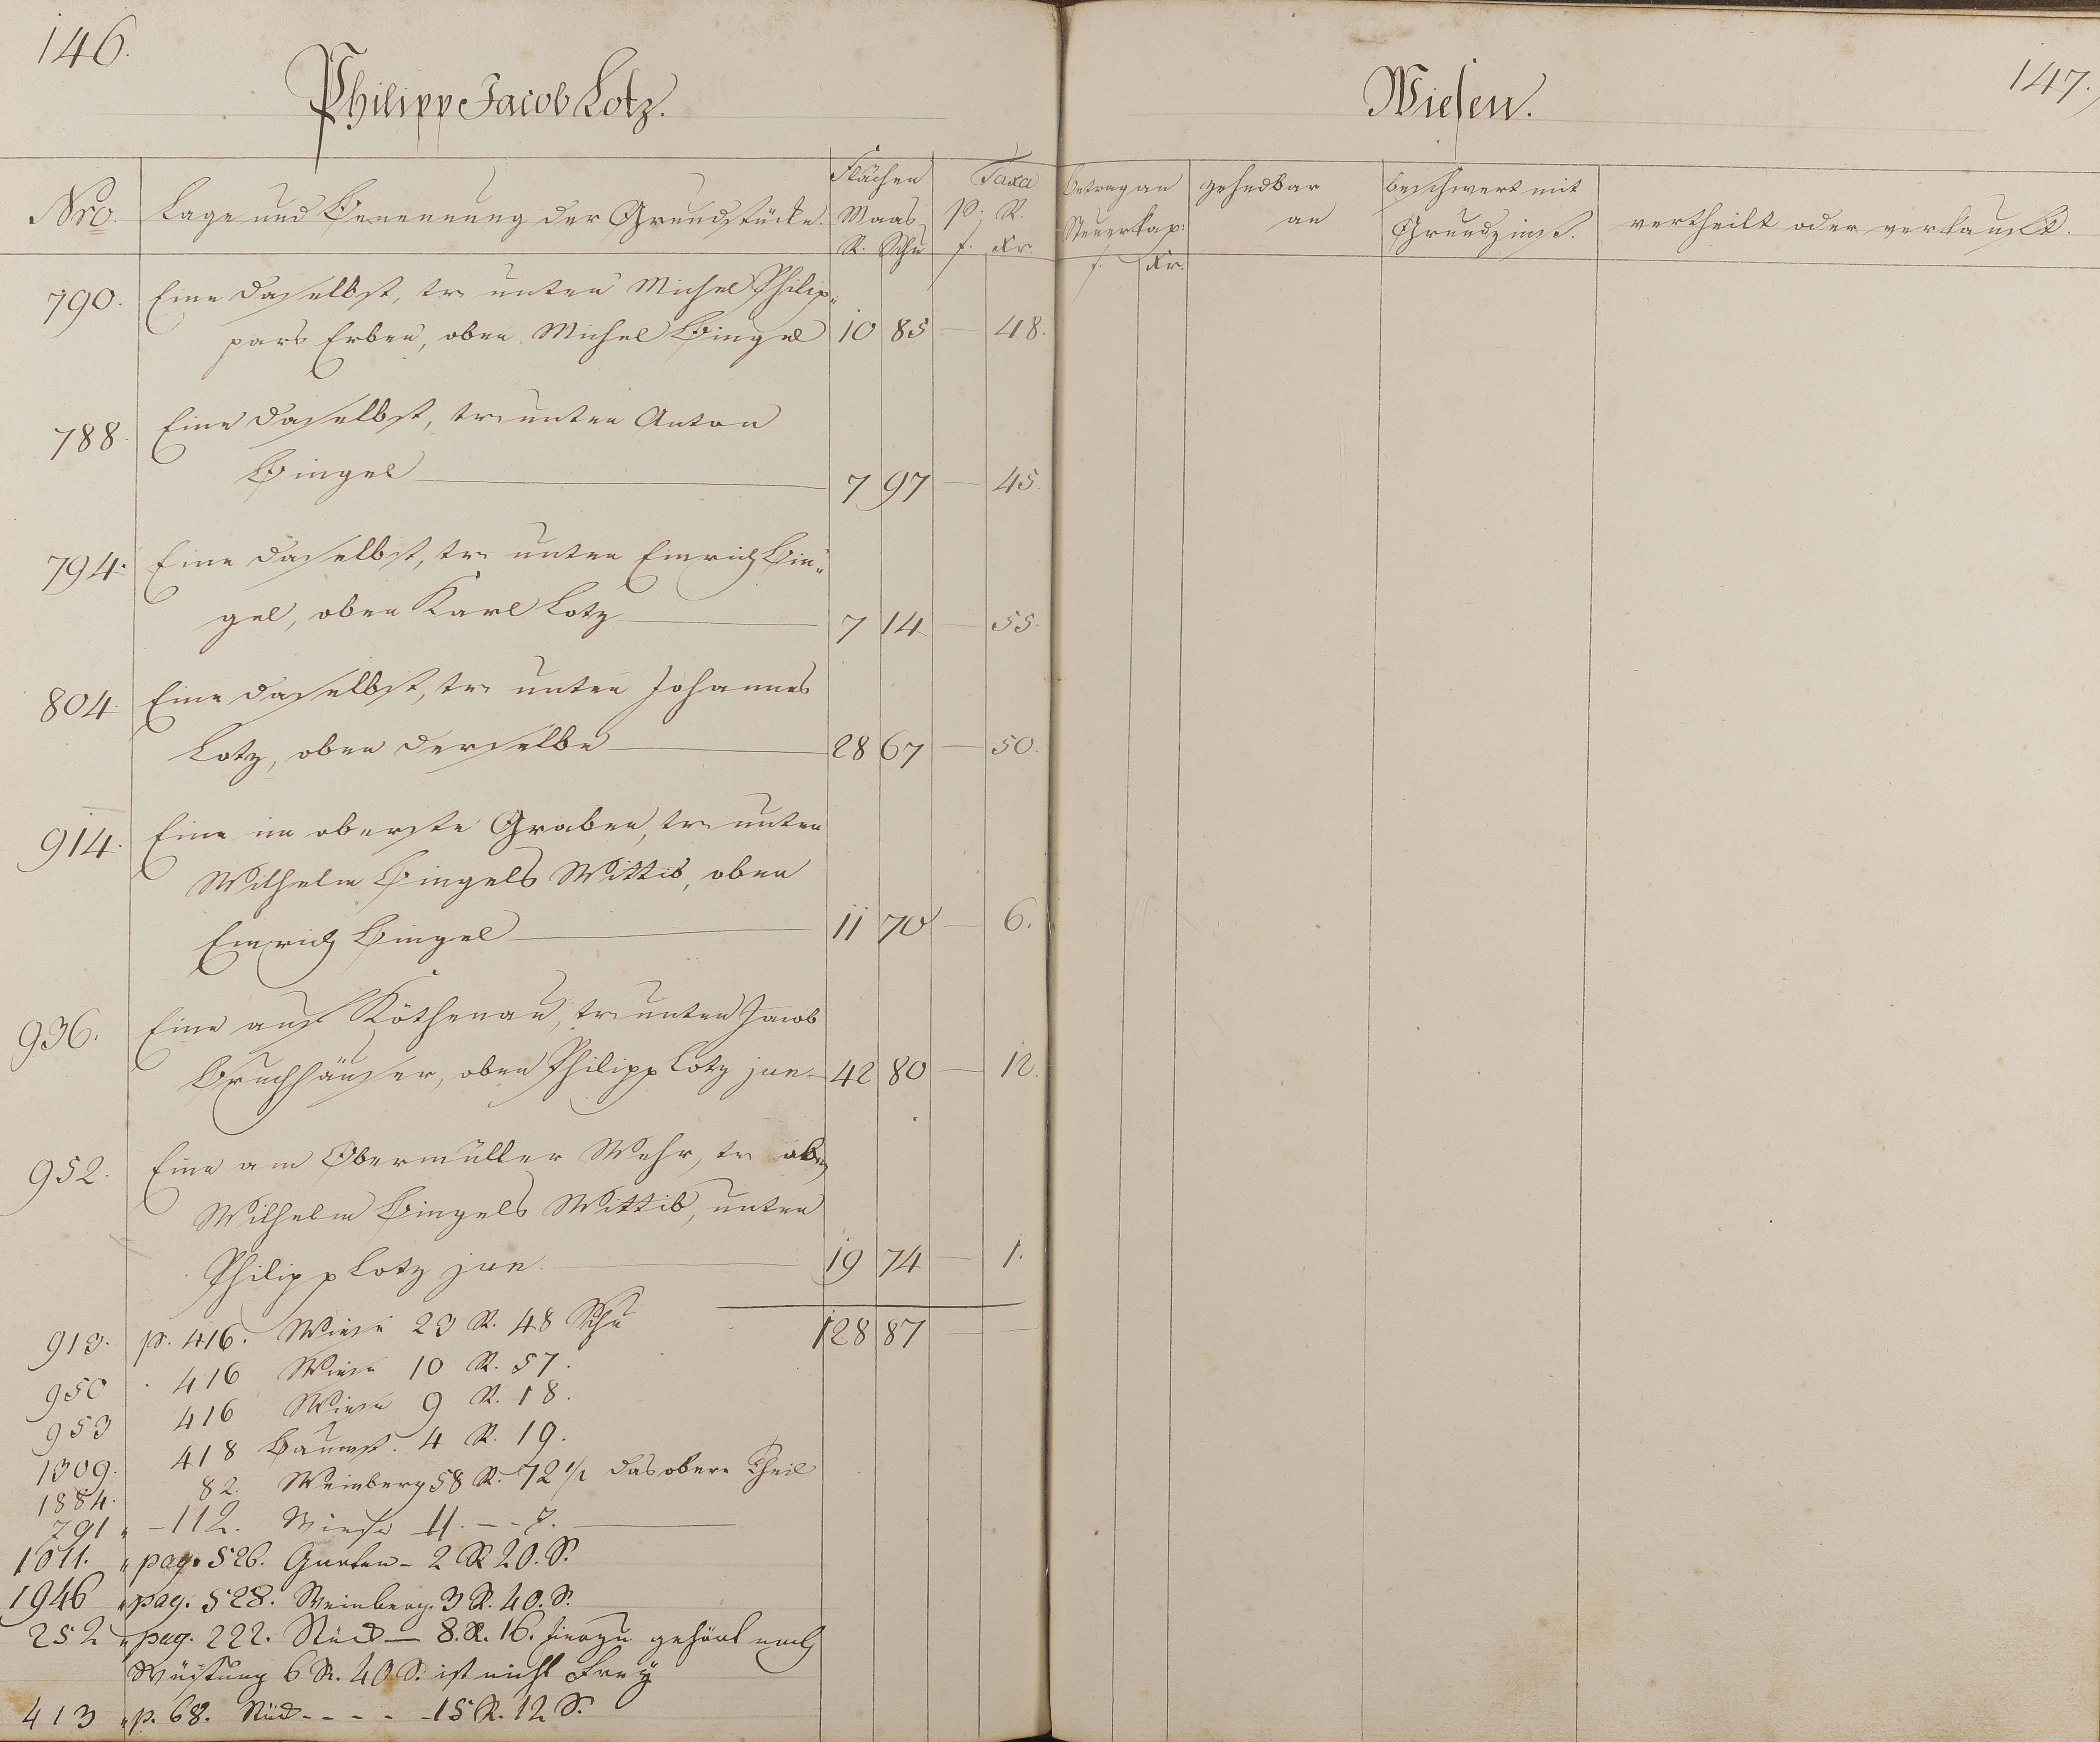 146.
Philipp Jacob Lotz.
Wiesen.
147.
Nro.
Lage und Benennung der Grundstücke.
Flächen
Maas
R. Schu
Taxa
p. R.
f. Xr.
Betrag an
Steuerkap:
f. Xr.
zehndbar
an
beschwert mit
Grundzinsß.
vertheilt oder verkauft.
790. Eine daselbst, tr. unten Michel Philip„
pars Erben, oben Michel Bingel 10 85 — 48.
788. Eine daselbst, tr. unten Anton
Bingel 7 97 — 45.
794. Eine daselbst, tr. unten Emrich Bin„
gel, oben Karl Lotz 7 14 — 55.
804. Eine daselbst, tr. unten Johannes
Lotz, oben derselbe 28 67 — 50.
914. Eine im oberste Graben, tr. unten
Wilhelm Bingels Wittib, oben
Emrich Bingel 11 70 — 6.
936. Eine auf Köthenau, tr. unten Jacob
Bruchhäuser, oben Philipp Lotz jun. 42 80 — 12.
952. Eine am Obermüller Wehr, tr. oben
Wilhelm Bingels Wittib, unten
Philipp Lotz jun. 19 74 — 1.
128 87 — —
913. p. 416. Wiese 23 R. 48 Schu
950 416 Wiese 10 R. 57.
953 416 Wiese 9 R. 18.
1309. 418 Baumst. 4 R. 19.
1884. 82. Weinberg 58 R. 72 1/2 das obere Theil
791 „ — 112. Wiese 11. — - 7.
1011. „ pag. 526. Garten - 2 R 20. S.
1946 „ pag. 528. Weinberg. 3 R. 40. S.
252 „ pag. 222. Stück — 8. R. 16. hierzu gehört noch
Wüstung 6 R. 40 S. ist nicht Frey
413 „ p. 68. Stück - - - - 15 R. 12 S.